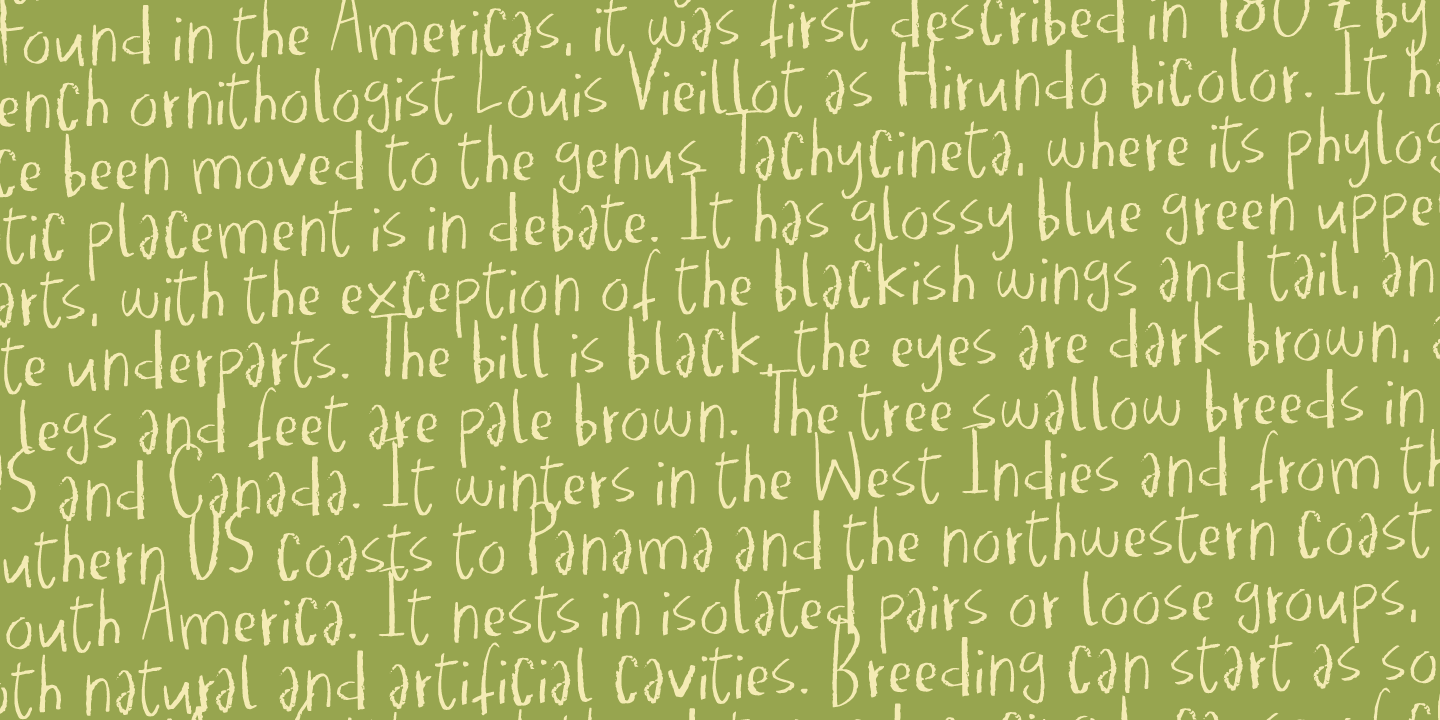 Found in the Americas, it was first described in 1807 by
ench ornithologist Louis Vieillot as Hirundo bicolor. It ha
ce been moved to the genus Tachycineta, where its phylog
tic placement is in debate. It has glossy blue green upper
arts, with the exception of the blackish wings and tail, an
te underparts. The bill is black, the eyes are dark brown, a
legs and feet are pale brown. The tree swallow breeds in
US and Canada. It winters in the West Indies and from th
uthern US coasts to Panama and the northwestern coast
outh America. It nests in isolated pairs or loose groups,
oth natural and artificial cavities. Breeding can start as so